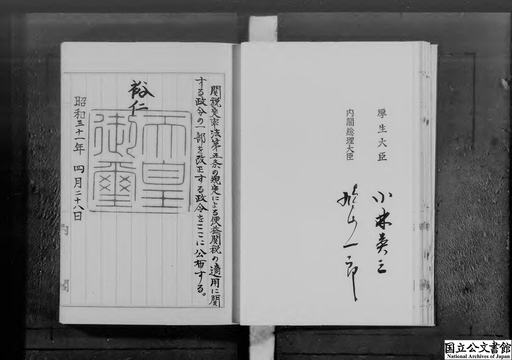 関税定率法第五条の規定による便益関税の適用に関
する政令の一部を改正する政令をここに公布する。
裕仁
天皇
御璽
昭和三十一年 四月二十八日
厚生大臣 小林英三
内閣総理大臣 鳩山一郎
国立公文書館
National Archives of Japan